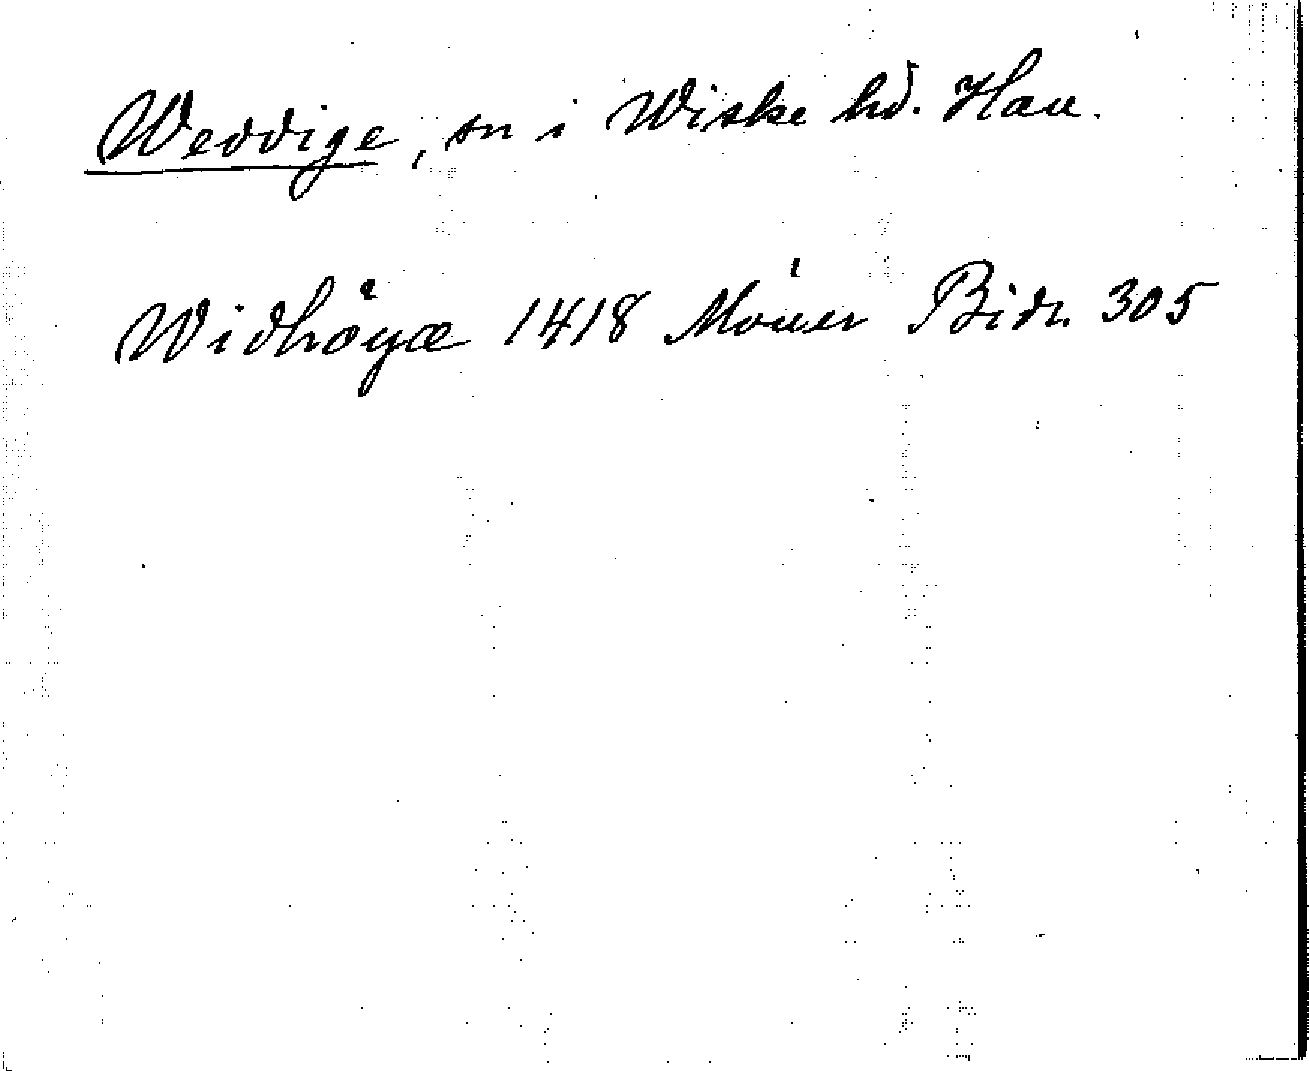 Weddige, sn i Wiske hd. Hall.
Widhöyæ 1418 Mòller Bidr. 305